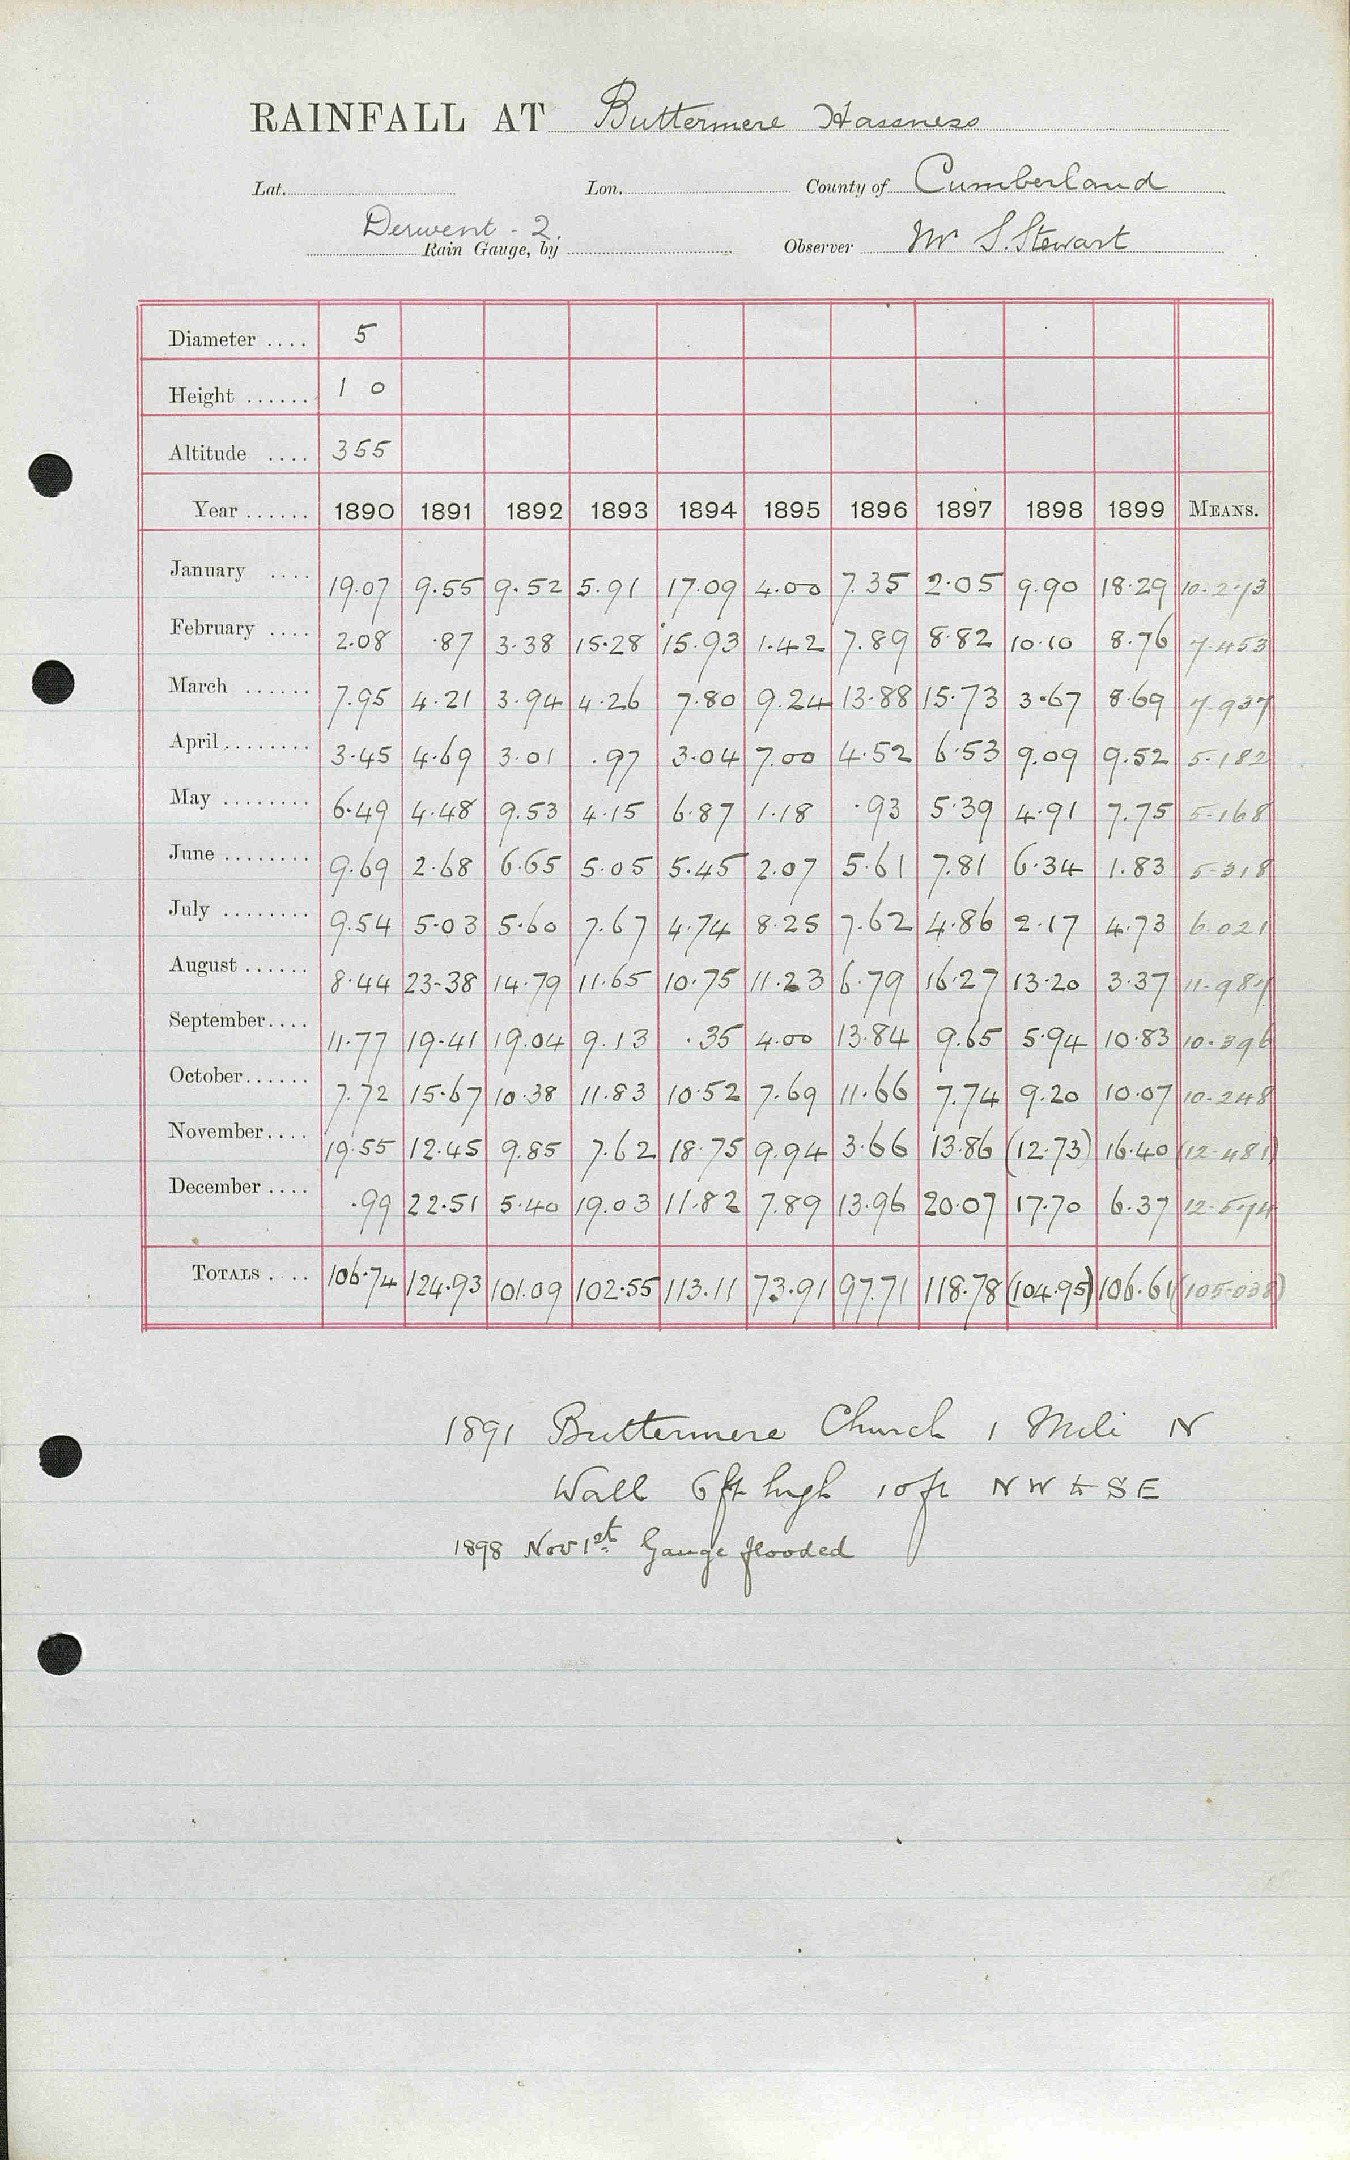 RAINFALL AT Buttermere Hassness
Lat. Lon. County of Cumberland
Derwent - 2.
Rain Gauge, by Observer Mr S. Stewart
Diameter .... 5
Height ...... 1 0
Altitude .... 355
Year ...... 1890 1891 1892 1893 1894 1895 1896 1897 1898 1899 MEANS.
January .... 19.07 9.55 9.52 5.91 17.09 4.00 7.35 2.05 9.90 18.29 10.273
February .... 2.08 .87 3.38 15.28 15.93 1.42 7.89 8.82 10.10 8.76 7.453
March ...... 7.95 4.21 3.94 4.26 7.80 9.24 13.88 15.73 3.67 8.69 7.937
April ........ 3.45 4.69 3.01 .97 3.04 7.00 4.52 6.53 9.09 9.52 5.182
May ........ 6.49 4.48 9.53 4.15 6.87 1.18 .93 5.39 4.91 7.75 5.168
June ........ 9.69 2.68 6.65 5.05 5.45 2.07 5.61 7.81 6.34 1.83 5.318
July ........ 9.54 5.03 5.60 7.67 4.74 8.25 7.62 4.86 2.17 4.73 6.021
August ...... 8.44 23.38 14.79 11.65 10.75 11.23 6.79 16.27 13.20 3.37 11.987
September.... 11.77 19.41 19.04 9.13 .35 4.00 13.84 9.65 5.94 10.83 10.396
October...... 7.72 15.67 10.38 11.83 10.52 7.69 11.66 7.74 9.20 10.07 10.248
November.... 19.55 12.45 9.85 7.62 18.75 9.94 3.66 13.86 (12.73) 16.40 (12.481)
December .... .99 22.51 5.40 19.03 11.82 7.89 13.96 20.07 17.70 6.37 12.574
TOTALS .... 106.74 124.93 101.09 102.55 113.11 73.91 97.71 118.78 (104.95) 106.61 (105.038)
1891 Buttermere Church 1 Mile N
Wall 6 ft high 10 ft NW & SE
1898 Nov 1st Gauge flooded